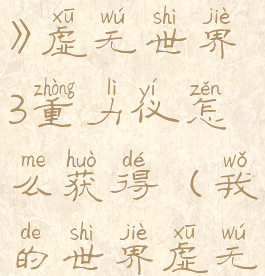 xū wú shì jiè
》虚无世界
zhòng lì yí zěn
3重力仪怎
me huò dé wǒ
么获得(我
de shì jiè xū wú
的世界虚无